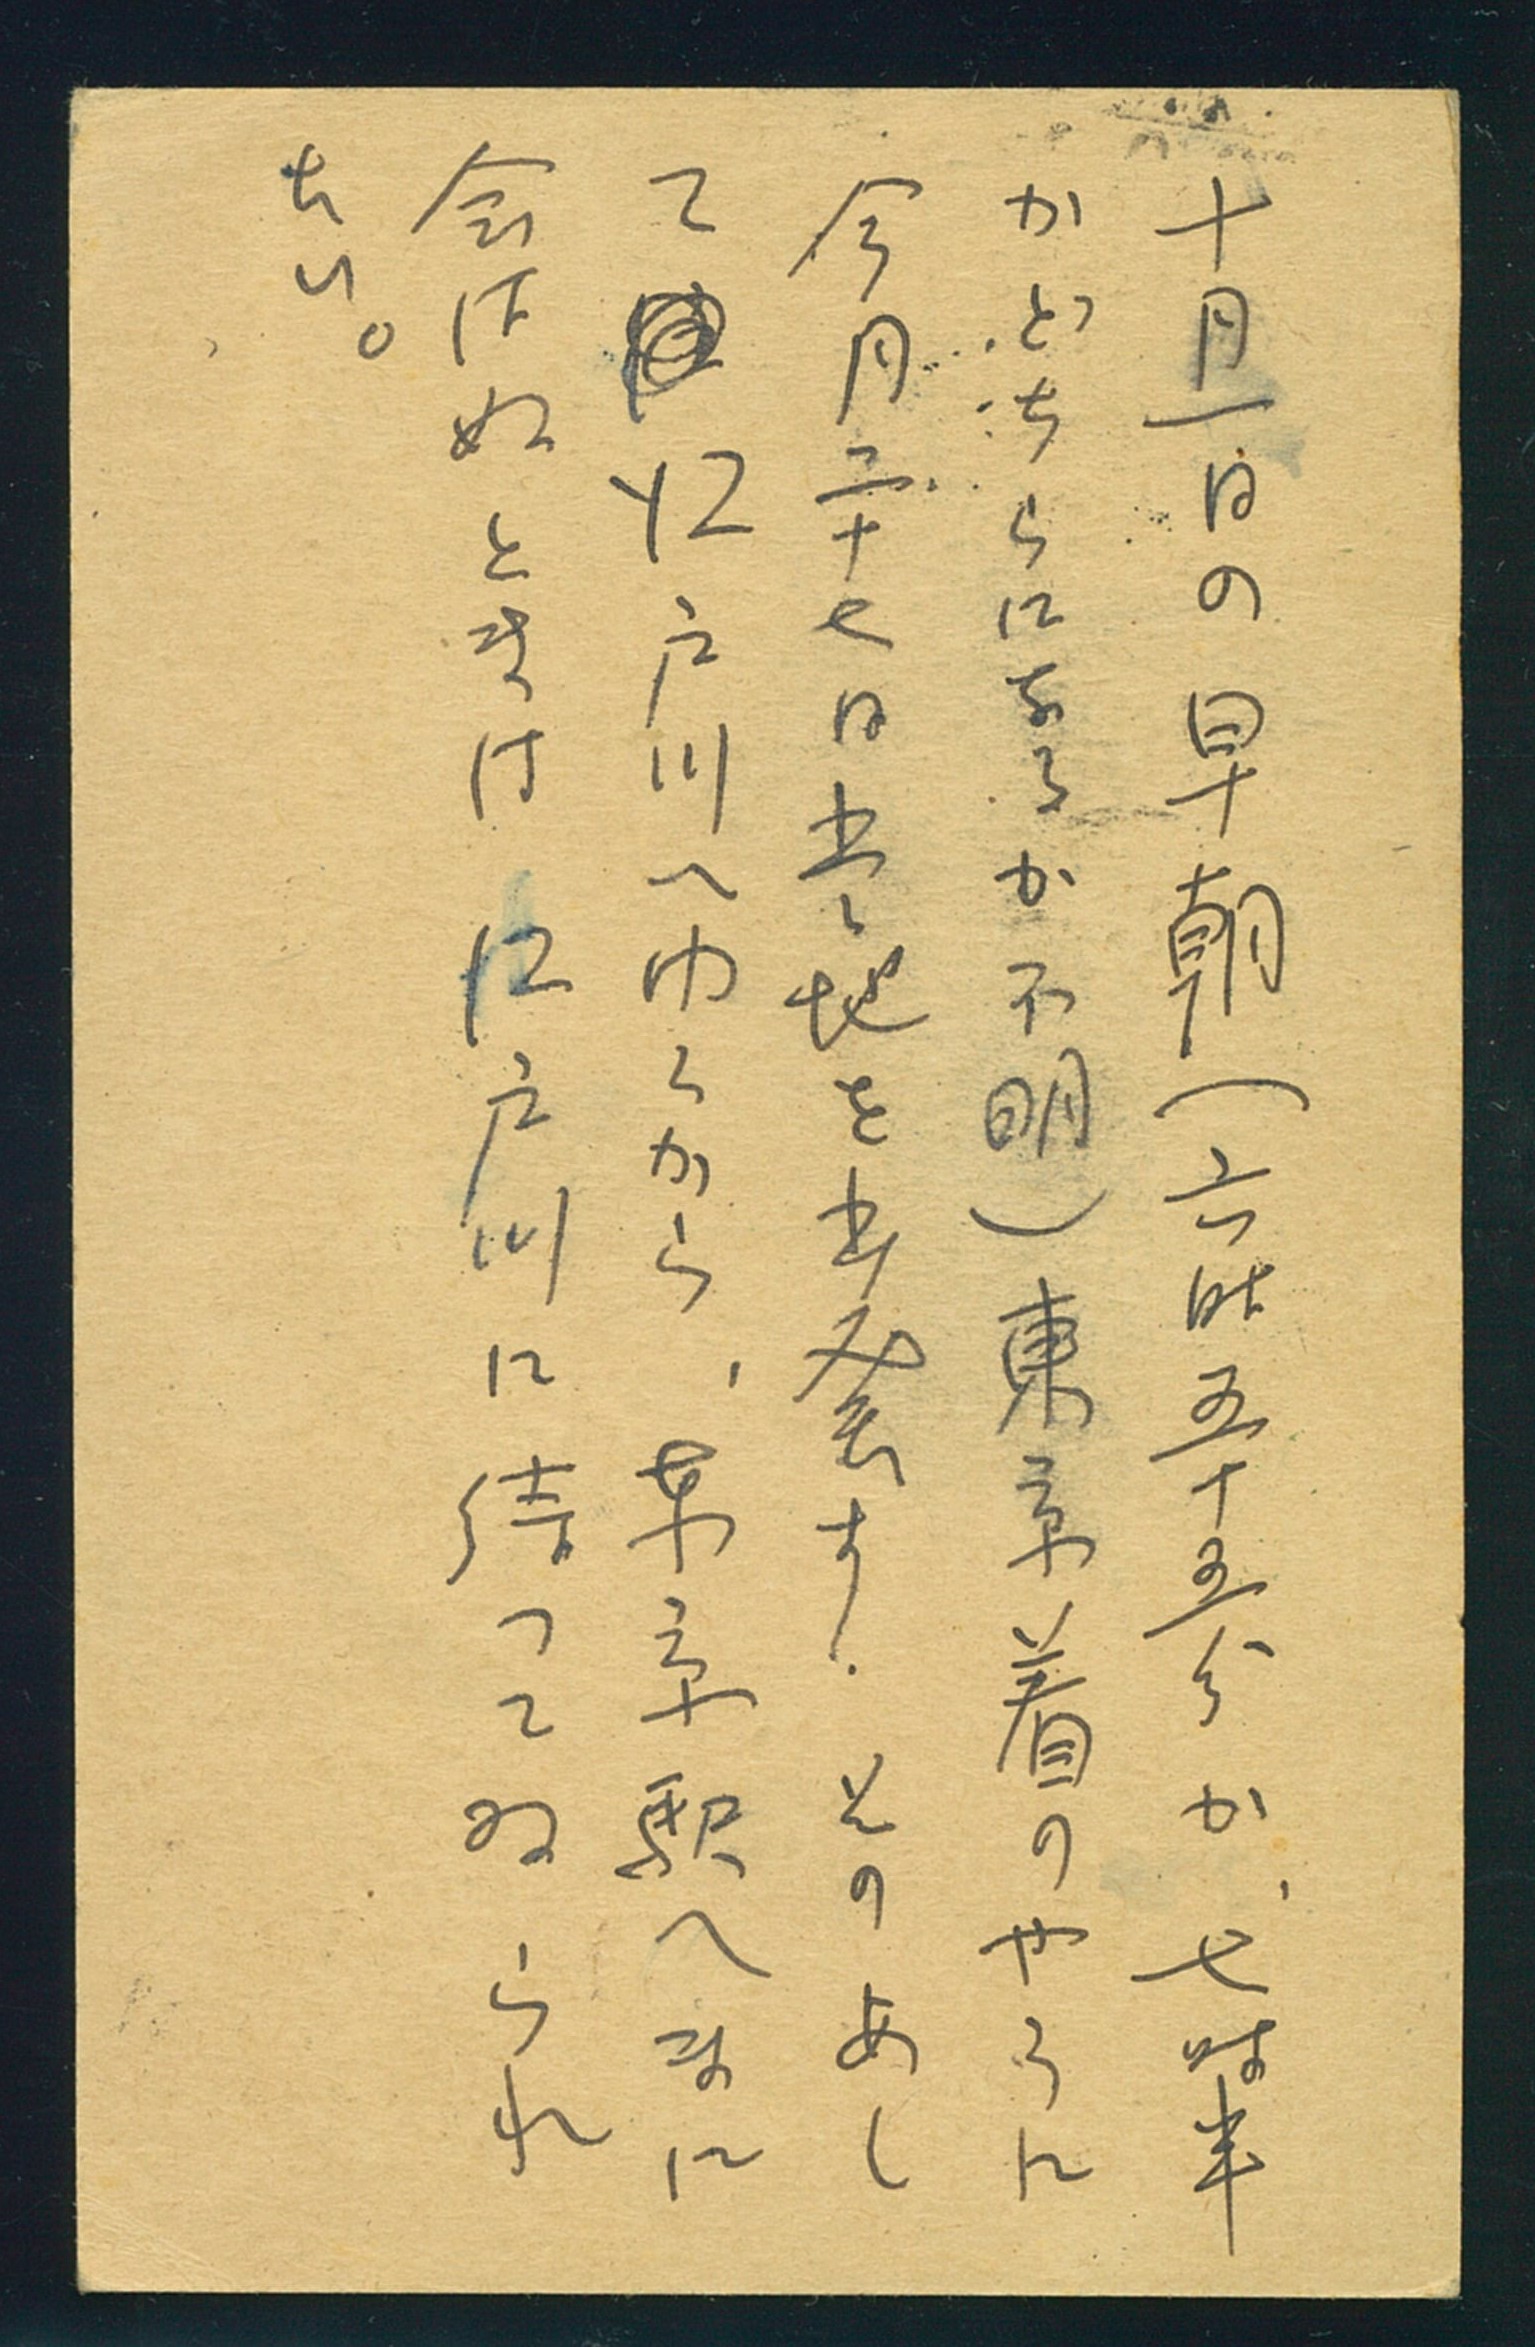 十月一日の早朝(六時五十五分か、七時半
かどちらになるか不明)東京着のやうに
今月二十七日当地を出発す。そのあし
て江戸川へゆくから、東京駅へまに
会はぬときは江戸川に待つてゐられ
たい。